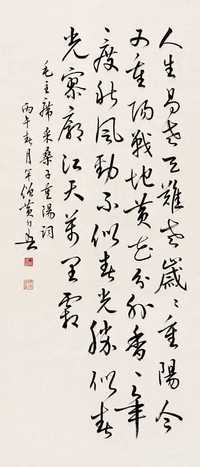 人生易老天難老歲々重陽今
又重陽戰地黃花分外香一年
一度秋風勁不似春光勝似春
光寥廓江天萬里霜
毛主席采桑子重陽詞
丙午春月